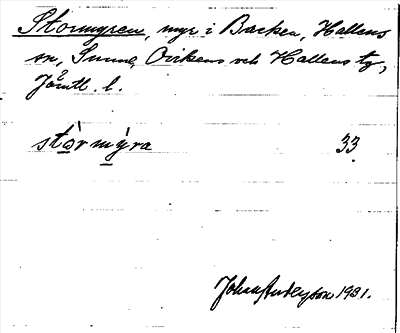 Stormyren, myr i Backen, Hallens
sn, Sunne, Ovikens och Hallens tg,
Jämtl. l.
stò̱r mý̱ra 33
Johan Nordlander 1931.